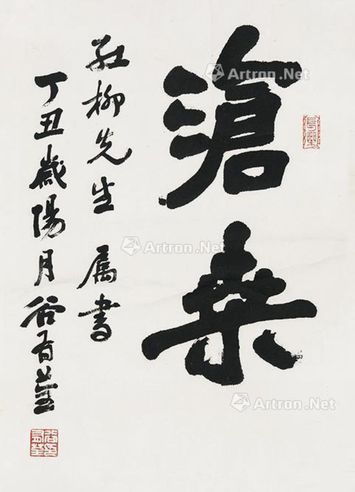 滄桑
紅柳先生 属書
丁丑歲陽月谷有荃
Artron.Net
Artron.Net
Artron.Net